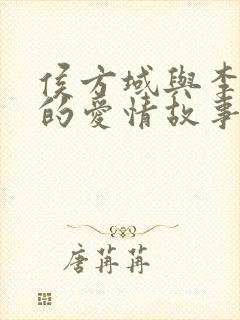 侯方域與李
的愛情故事
唐苒苒